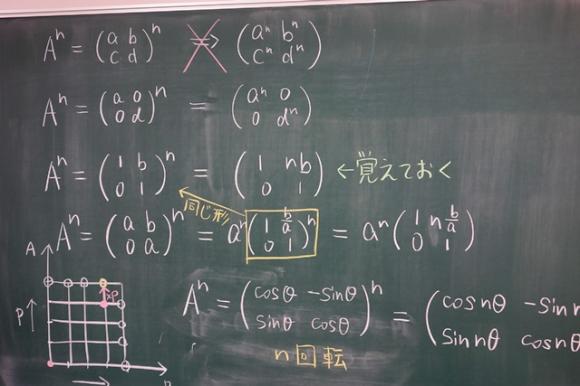 Aⁿ = (a b / c d)ⁿ ⇒ (aⁿ bⁿ / cⁿ dⁿ)
Aⁿ = (a 0 / 0 d)ⁿ = (aⁿ 0 / 0 dⁿ)
Aⁿ = (1 b / 0 1)ⁿ = (1 nb / 0 1) ←覚えておく
同じ形
Aⁿ = (a b / 0 a)ⁿ = aⁿ(1 b/a / 0 1)ⁿ = aⁿ(1 n b/a / 0 1)
A
P↑
Aⁿ = (cosθ -sinθ / sinθ cosθ)ⁿ = (cosnθ -Sinn / Sinnθ cosn
n回転